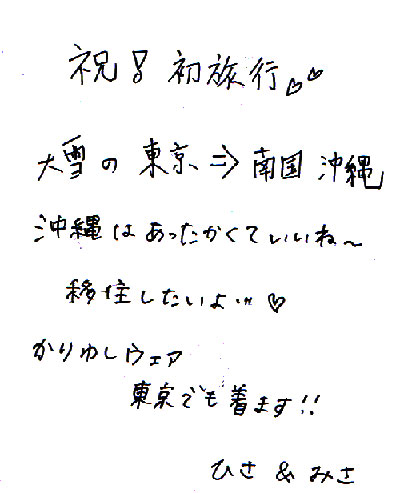 祝！初旅行♡♡
大雪の東京⇒南国沖縄
沖縄はあったかくていいね〜
移住したいよ…♡
かりゆしウェア
東京でも着ます!!
ひさ & みさ